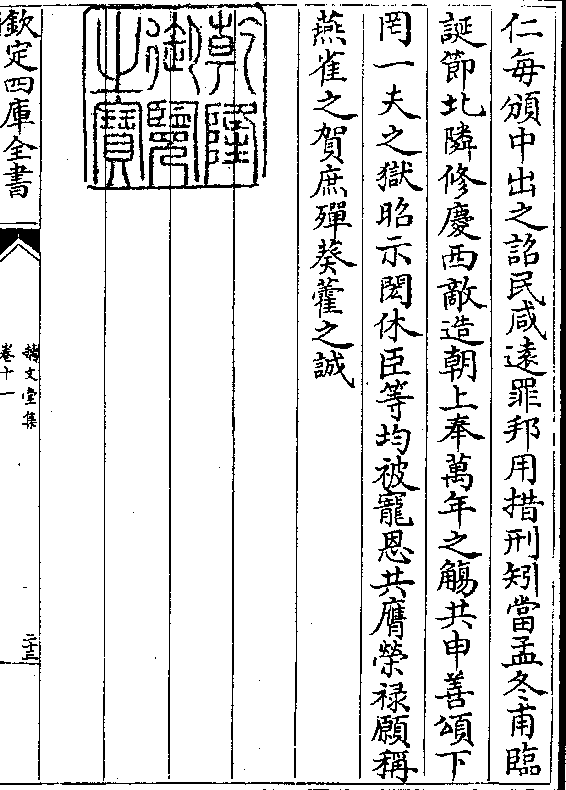 仁每頒中出之詔民咸遠罪邦用措刑矧當孟冬甫臨
誕節北隣修慶西敵造朝上奉萬年之觴共申善頌下
罔一夫之獄昭示閎休臣等均被寵恩共膺榮禄願稱
燕雀之賀庶殫葵藿之誠
乾隆
御覽
之寶
欽定四庫全書
摛文堂集
卷十一
二十三